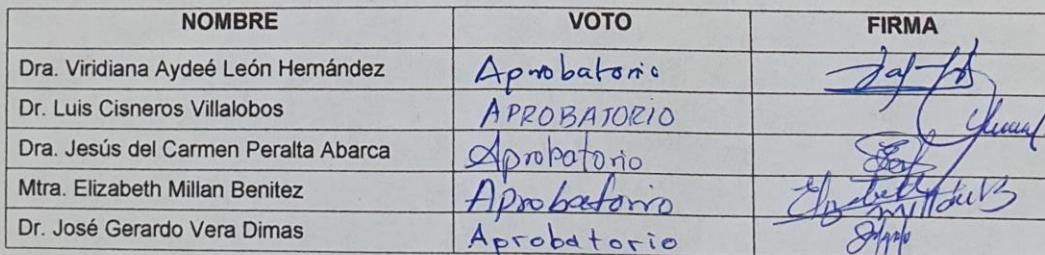 NOMBRE VOTO FIRMA
Dra. Viridiana Aydeé León Hernández Aprobatorio
Dr. Luis Cisneros Villalobos APROBATORIO
Dra. Jesús del Carmen Peralta Abarca Aprobatorio
Mtra. Elizabeth Millan Benitez Aprobatorio Elizabeth Millan B
Dr. José Gerardo Vera Dimas Aprobatorio